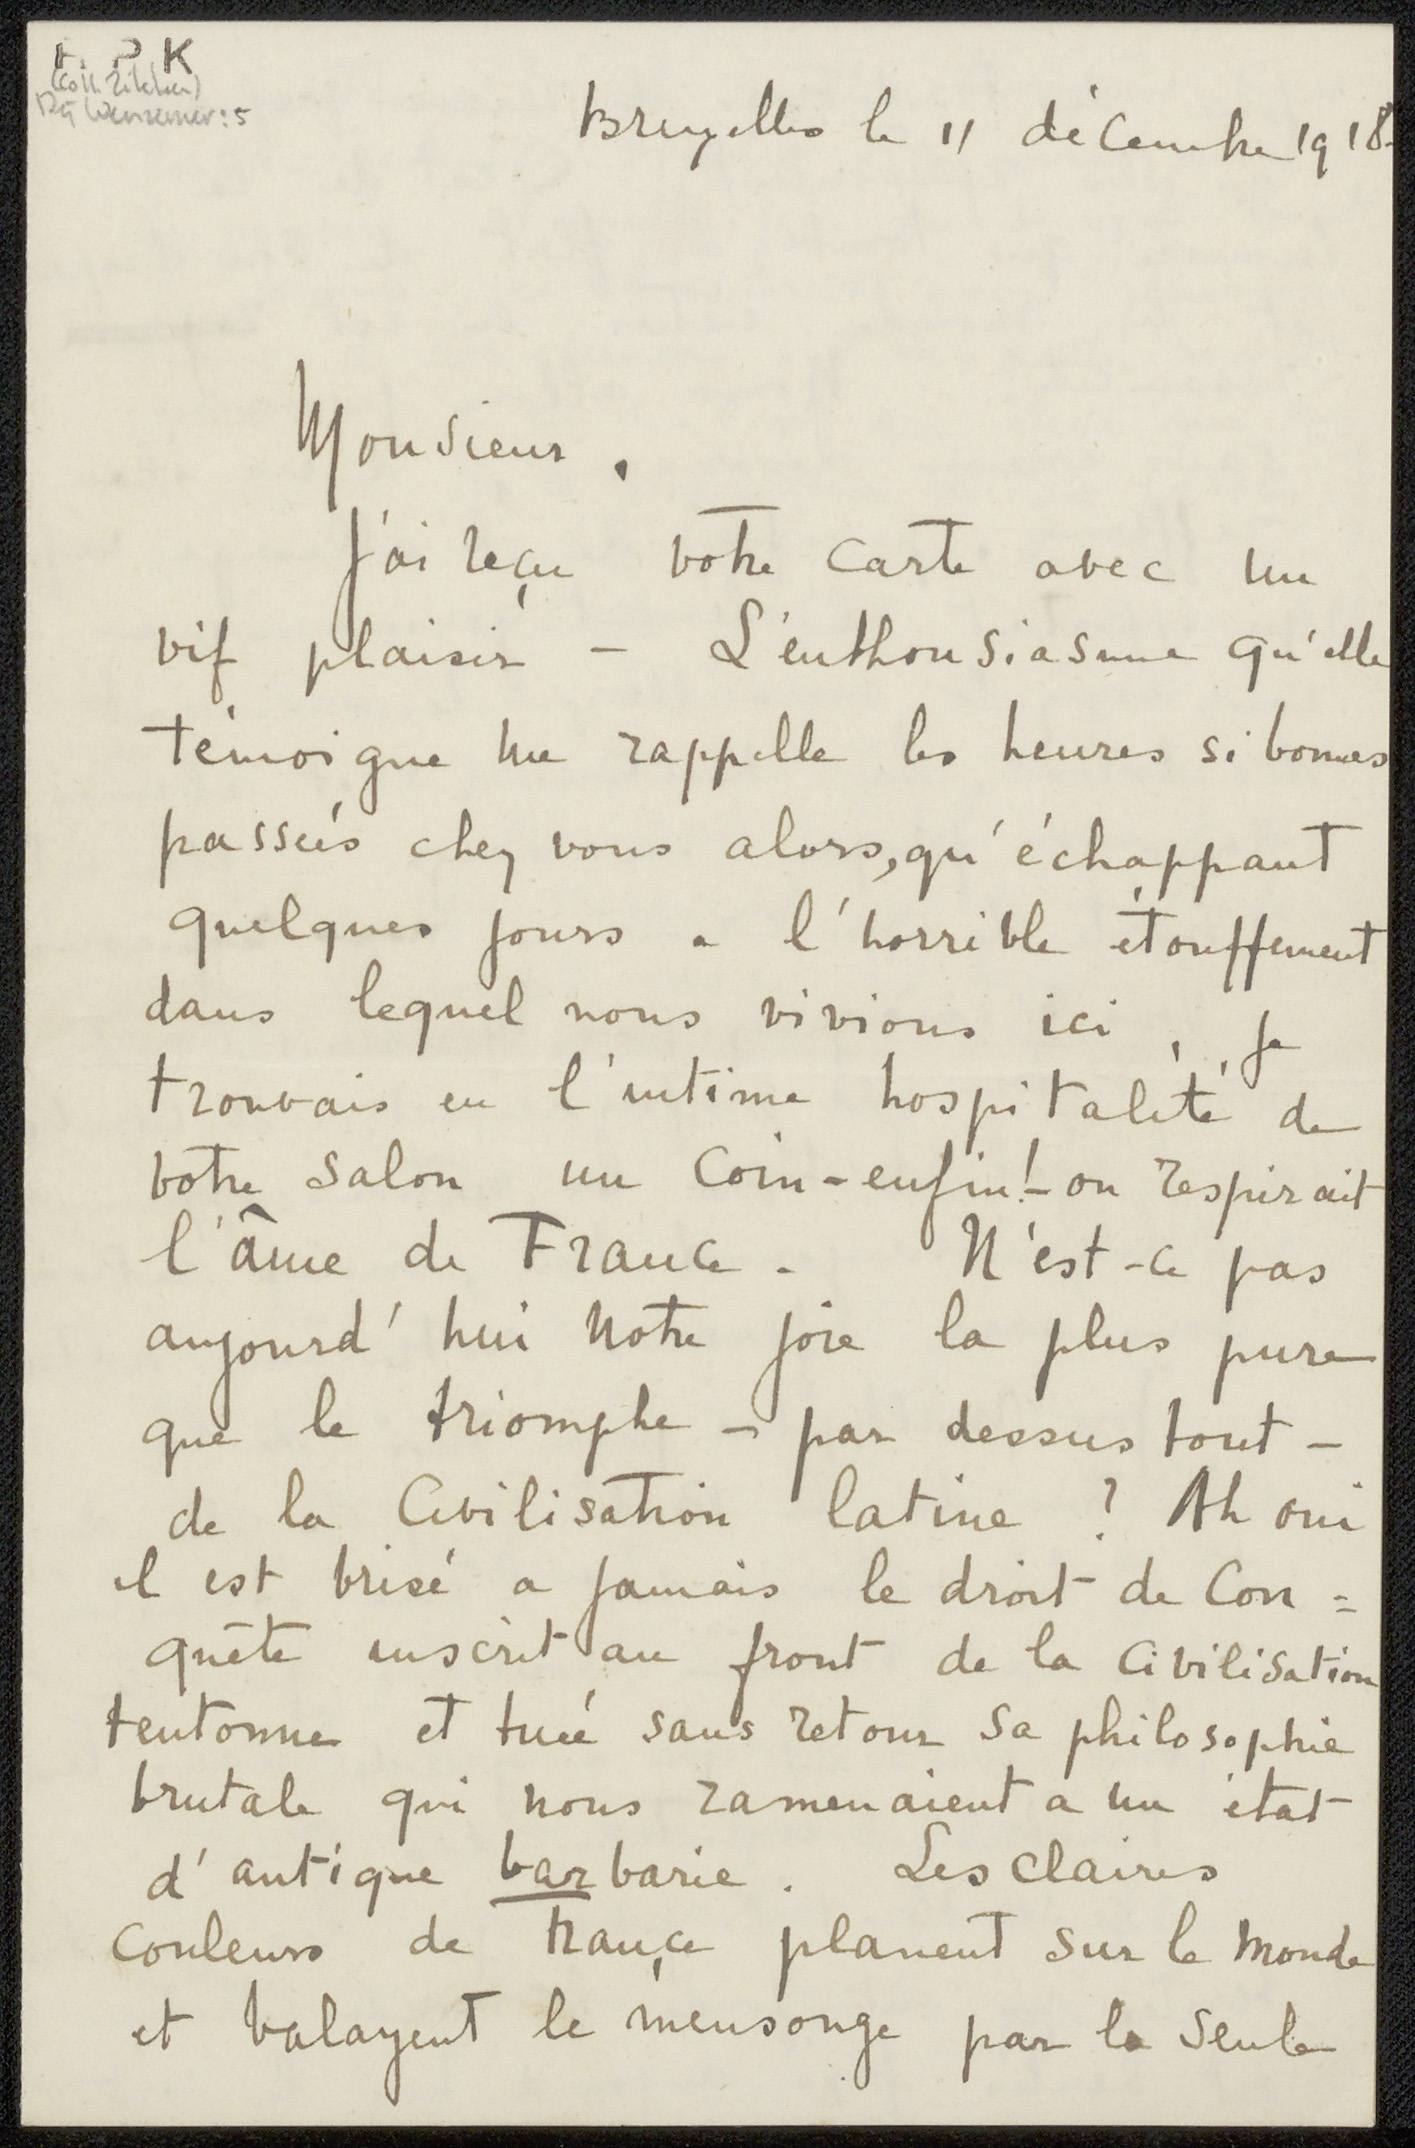 Bruxelles le 11 décembre 1918.
Monsieur.
J'ai reçu votre carte avec un
vif plaisir – L'enthousiasme qu'elle
témoigne me rappelle les heures si bonnes
passées chez vous alors, qu'échappant
quelques jours a l'horrible étouffement
dans lequel nous vivions ici, je
trouvais en l'intime hospitalité de
votre salon un coin – enfin! – on respirait
l'âme de France. N'est-ce pas
aujourd'hui notre joie la plus pure
que le triomphe – par dessus tout –
de la Civilisation latine ? Ah oui
il est brisé a jamais le droit de Con=
quête inscrit au front de la Civilisation
teutonne et tuée sans retour sa philosophie
brutale qui nous ramenaient a un état
d'antique barbarie. Les claires
couleurs de France planent sur le monde
et balayent le mensonge par la seule